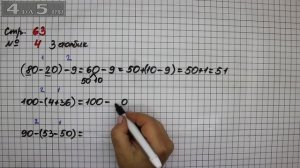 4 5
Стр. 63
№ 4 3 столбик
1 2
(80-20)-9=60-9=50+(10-9)=50+1=51
50 10
2 1
100-(4+36)=100- 0
2 1
90-(53-50)=